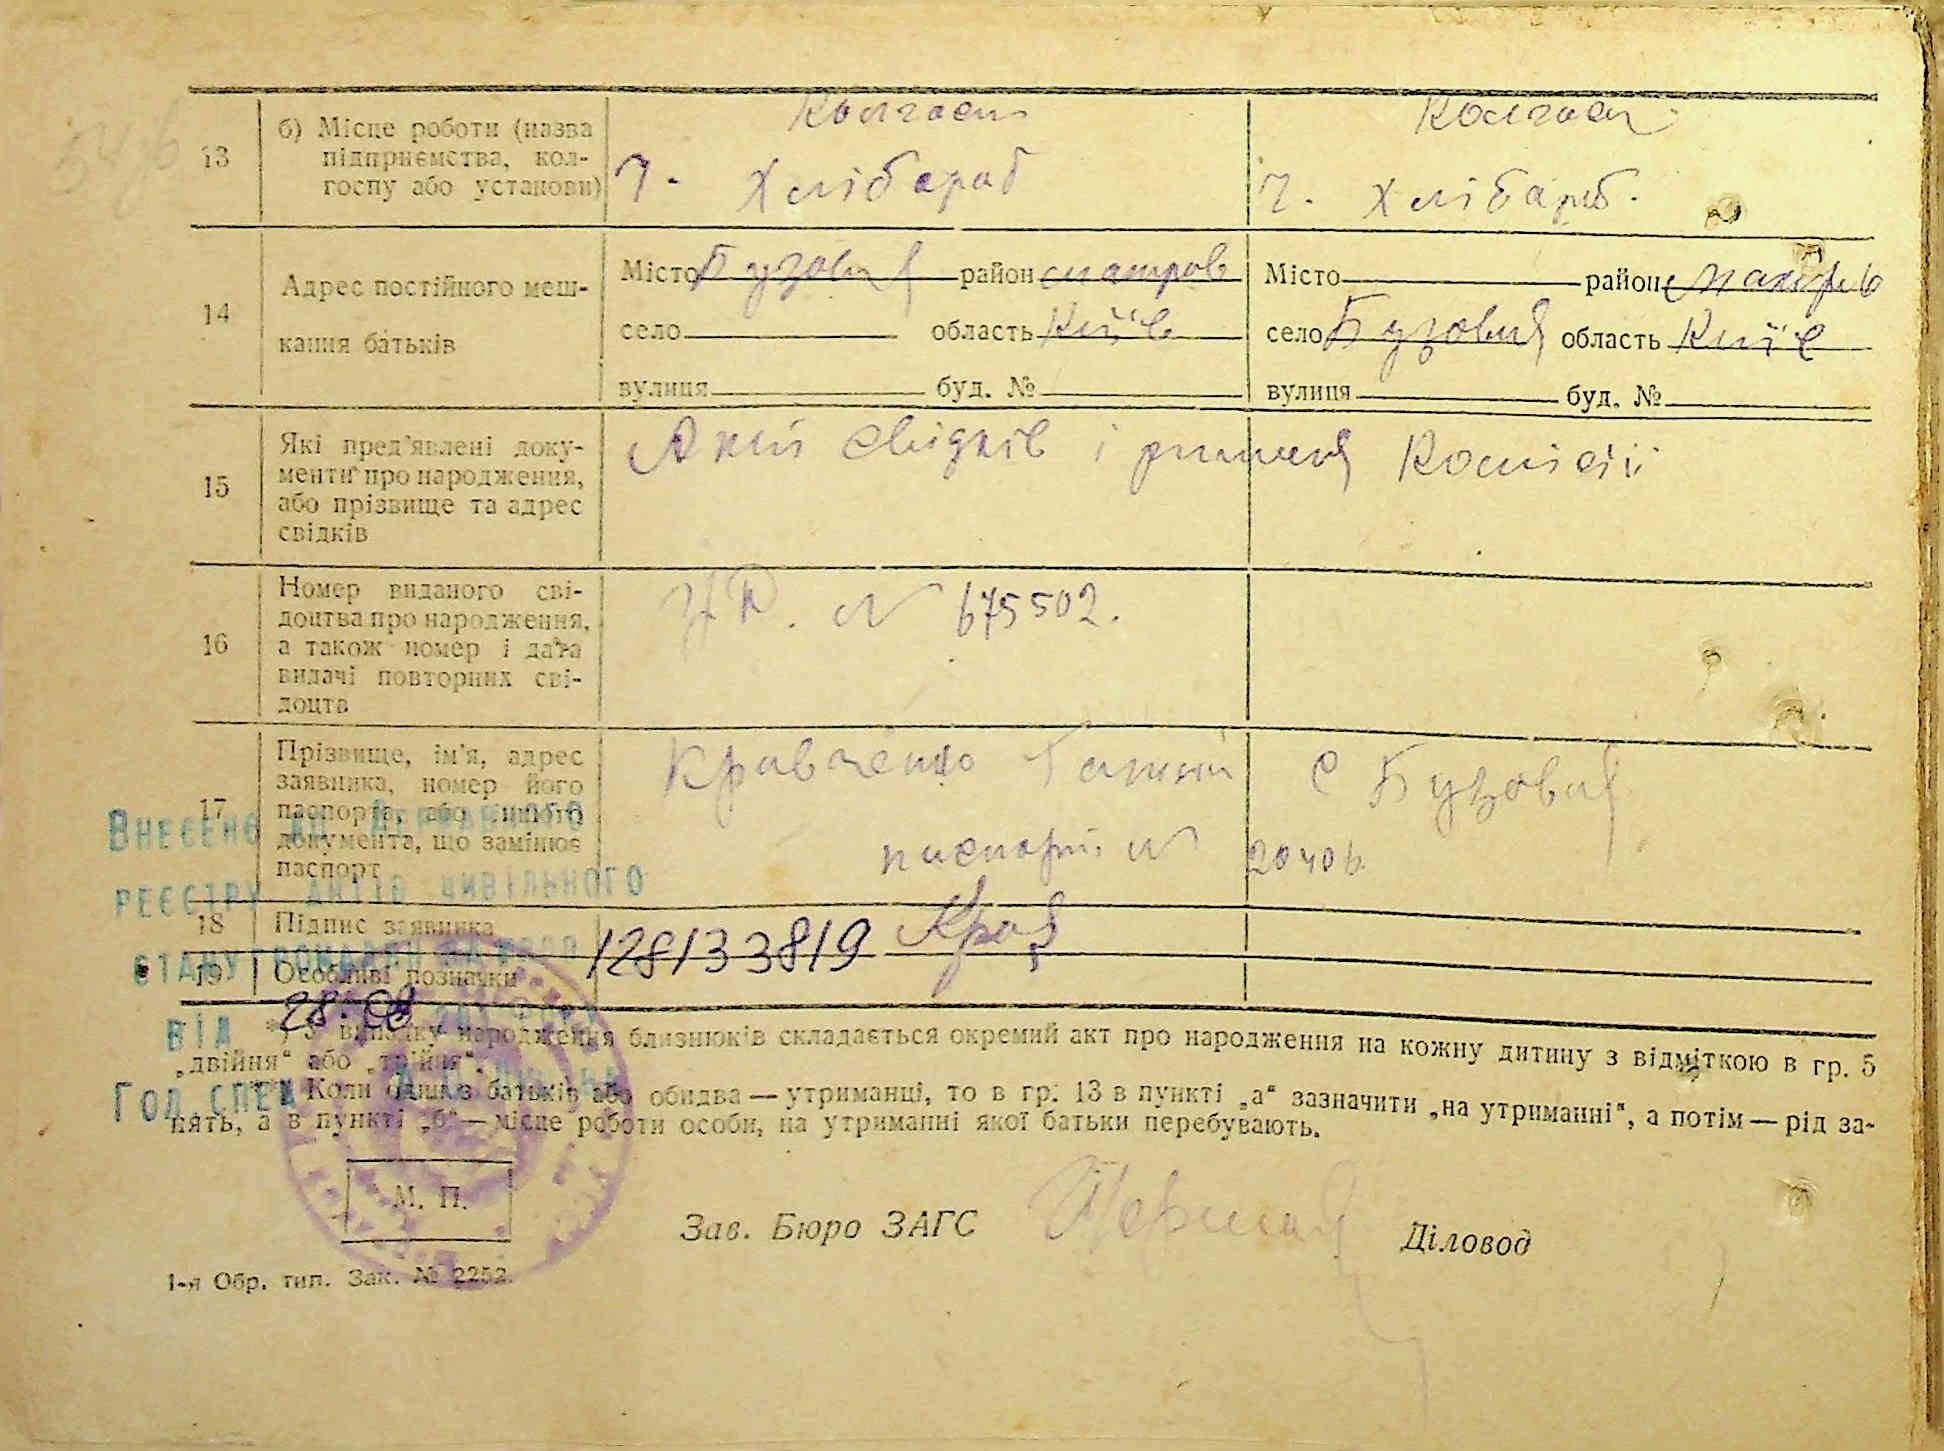 13
б) Місце роботи (назва підприємства, кол-
госпу або установи)
Колгосп
Ч. Хлібороб
Колгосп
Ч. Хлібороб.
14
Адрес постійного меш-
кання батьків
Місто Бузова район
село область Київ
вулиця буд. №
Місто район Макарів
село Бузова область Київ
вулиця буд. №
15
Які пред'явлені доку-
менти про народження,
або прізвище та адрес
свідків
Акти свідків і рішення Комісії
16
Номер виданого сві-
доцтва про народження,
а також номер і дата
видачі повторних сві-
доцтв
№ 675502.
17
Прізвище, ім'я, адрес
заявника, номер його
паспорта, або іншого
документа, що замінює
паспорт
Кравченко
с Бузова
паспорт № 20406.
18
Підпис заявника
Крав
19
Особливі позначки
128133819
Внесено до Державного
реєстру актів цивільного
стану громадян за №
від 28.08
Гол. спец
*) У випадку народження близнюків складається окремий акт про народження на кожну дитину з відміткою в гр. 5
„двійня“ або „трійня“.
Коли один з батьків або обидва — утриманці, то в гр. 13 в пункті „а“ зазначити „на утриманні“, а потім — рід за-
нять, а в пункті „б“ — місце роботи особи, на утриманні якої батьки перебувають.
М. П.
Зав. Бюро ЗАГС
Діловод
1-я Обр. тип. Зак. № 2252.